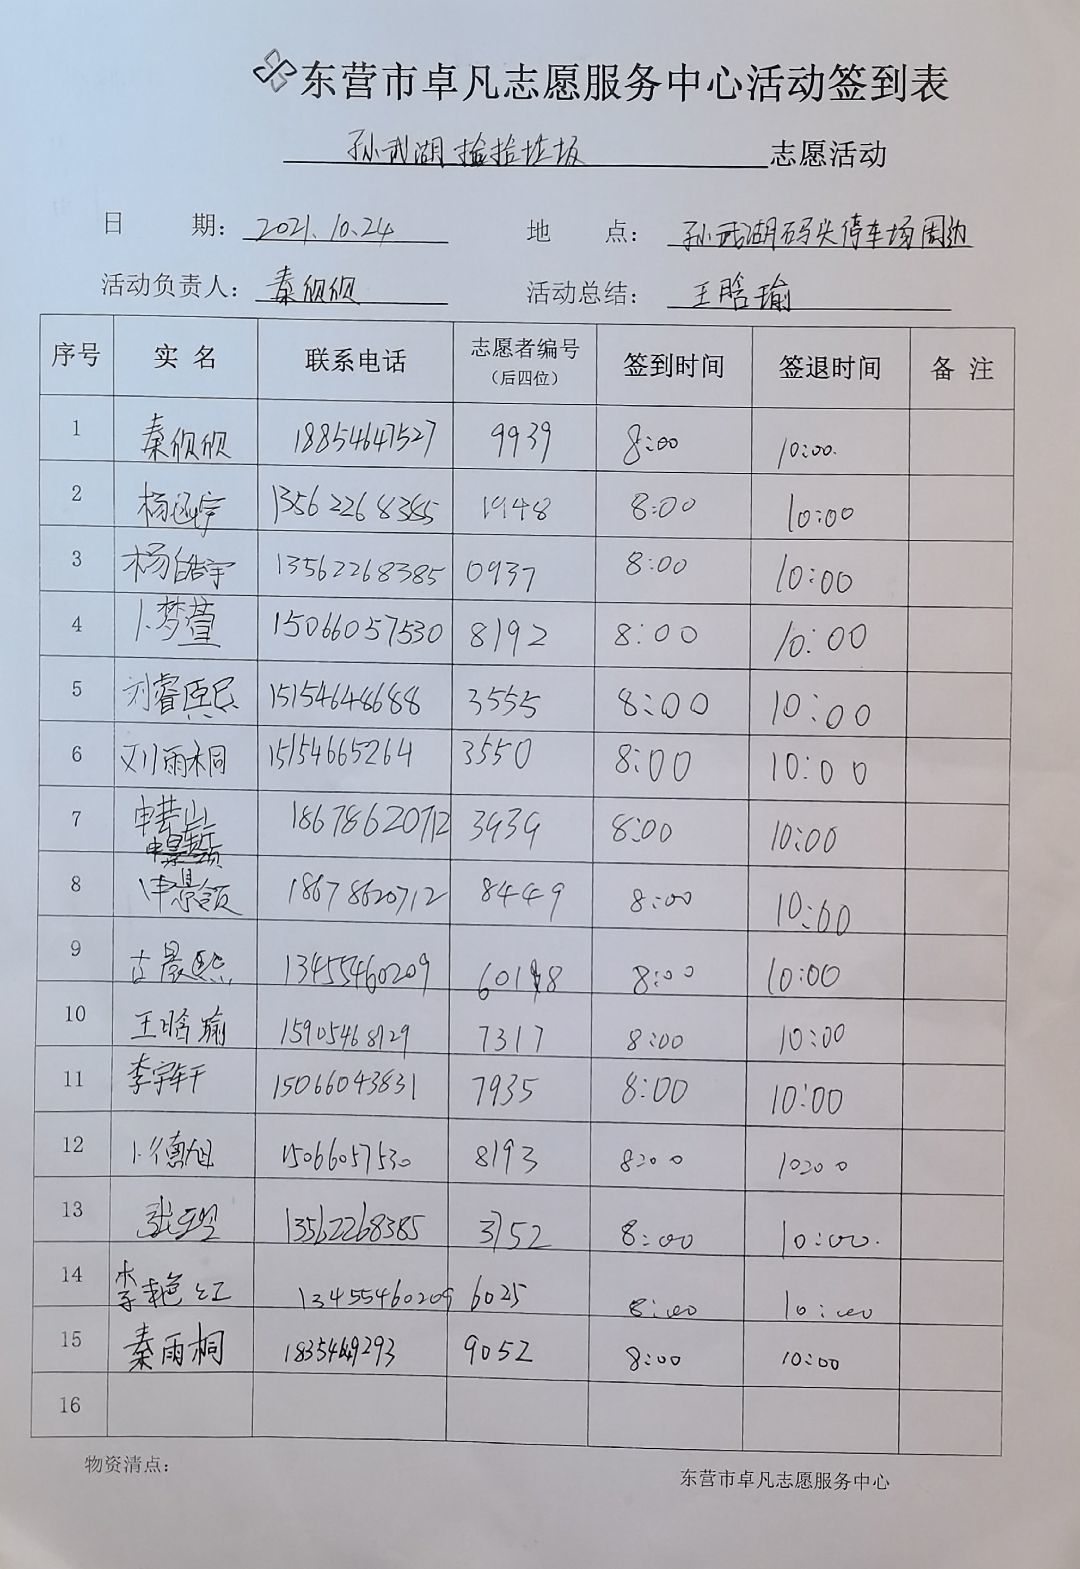 东营市卓凡志愿服务中心活动签到表
孙武湖捡拾垃圾 志愿活动
日 期: 2021.10.24 地 点: 孙武湖码头停车场周边
活动负责人: 秦侦侦 活动总结: 王晗瑜
序号 实名 联系电话 志愿者编号（后四位） 签到时间 签退时间 备注
1 18854647527 9939 8:00 10:00.
2 杨函宇 13562268385 1948 8:00 10:00
3 杨皓宇 13562268385 0937 8:00 10:00
4 卜梦萱 15066057530 8192 8:00 10:00
5 刘睿熙 15154648688 3555 8:00 10:00
6 刘雨桐 15154665264 3550 8:00 10:00
7 18678620712 3939 8:00 10:00
8 申景颔 18678620712 8449 8:00 10:00
9 古晨熙 13455460209 8:00 10:00
10 王晗瑜 15905468129 7317 8:00 10:00
11 李宇轩 15066043831 7935 8:00 10:00
12 卜德旭 15066057530 8193 8:00 10:00
13 13562268385 3152 8:00 10:00.
14 李艳红 13455460209 6025 8:00 10:00
15 秦雨桐 9052 8:00 10:00
16
物资清点: 东营市卓凡志愿服务中心